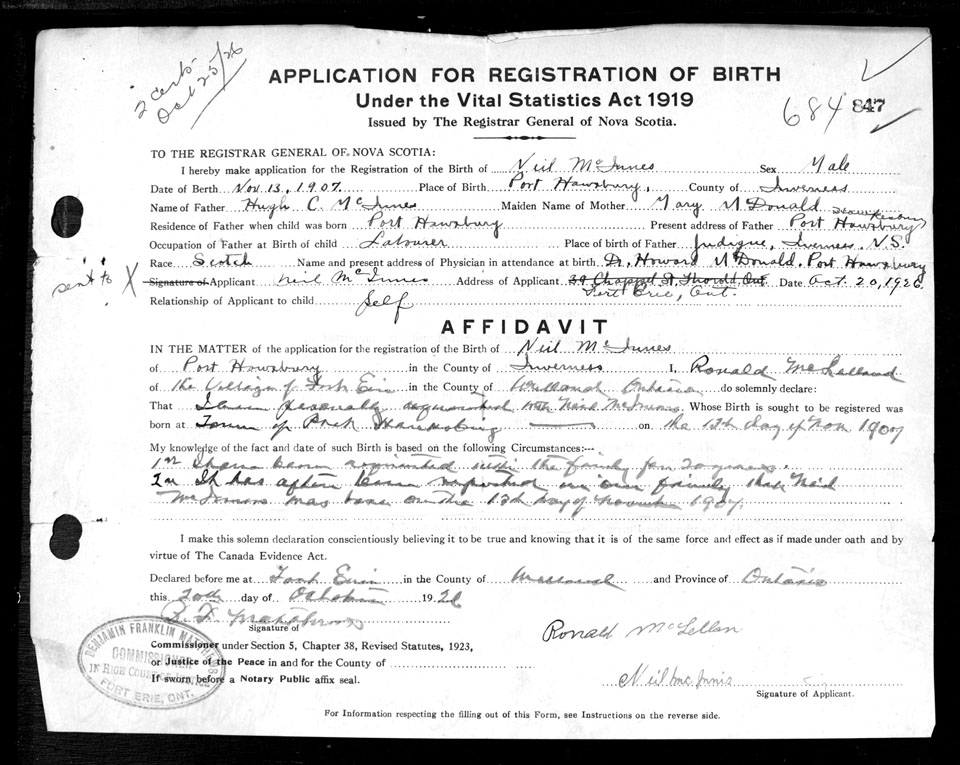 2 certs
Oct 25/26
APPLICATION FOR REGISTRATION OF BIRTH
Under the Vital Statistics Act 1919
Issued by The Registrar General of Nova Scotia.
684 847
TO THE REGISTRAR GENERAL OF NOVA SCOTIA:
I hereby make application for the Registration of the Birth of Neil McInnes Sex Male
Date of Berth Nov. 13, 1907. Place of Birth Port Hawsbury, County of Inverness
Name of Father Hugh C. McInnes Maiden Name of Mother Mary McDonald Hawkesbury
Residence of Father when child was born Port Hawsbury Present address of Father Port Hawsbury
Occupation of Father at Birth of child Labourer Place of birth of Father Judique, Inverness. N.S.
Race Scotch Name and present address of Physician in attendance at birth Dr. Howard McDonald. Port Hawsbury
sent to X Signature of Applicant Neil McInnes Address of Applicant 39 Chappel St, Thorold, Ont. Date Oct. 20, 1926
Fort Erie, Ont.
Relationship of Applicant to child Self
AFFIDAVIT
IN THE MATTER of the application for the registration of the Birth of Neil McInnes
of Port Hawsbury in the County of Inverness I, Ronald McLelland
of the Village of Fort Erie in the County of Welland Ontario do solemnly declare:
That I am personally acquainted with Neil McInnes Whose Birth is sought to be registered was
born at Town of Port on the 13th day of Nov 1907
My knowledge of the fact and date of such Birth is based on the following Circumstances:--
1st I have been acquainted with the family for 20 years.
2nd It has often been reported in our family that Neil
McInnes was born on the 13th day of November 1907.
I make this solemn declaration conscientiously believing it to be true and knowing that it is of the same force and effect as if made under oath and by
virtue of The Canada Evidence Act.
Declared before me at Fort Erie in the County of Welland and Province of Ontario
this 20th day of October 1926
B. F. Matthews
Signature of
Ronald McLellan
Commissioner under Section 5, Chapter 38, Revised Statutes, 1923,
or Justice of the Peace in and for the County of
If sworn before a Notary Public affix seal.
BENJAMIN FRANKLIN MATTHEWS
COMMISSIONER
IN HIGH COURT OF JUSTICE
FORT ERIE, ONT.
Neil Mc Innis
Signature of Applicant.
For Information respecting the filling out of this Form, see Instructions on the reverse side.